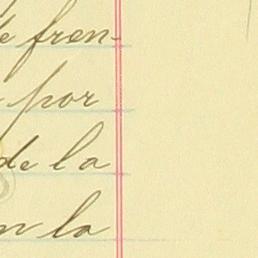 de fren-
por
de la
n la